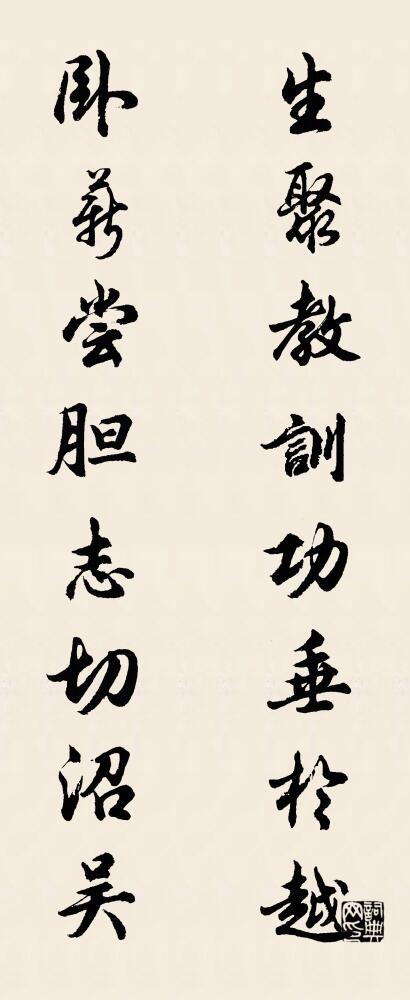 生聚教訓功垂於越
卧薪尝胆志切沼吴